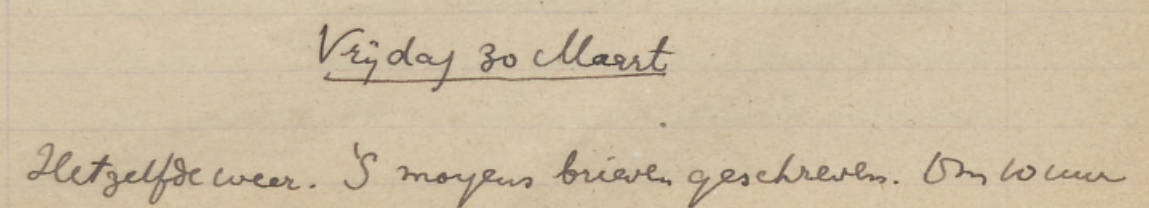 Vrijdag 30 Maart
Hetzelfde weer. 'S morgens brieven geschreven. Om 10 uur